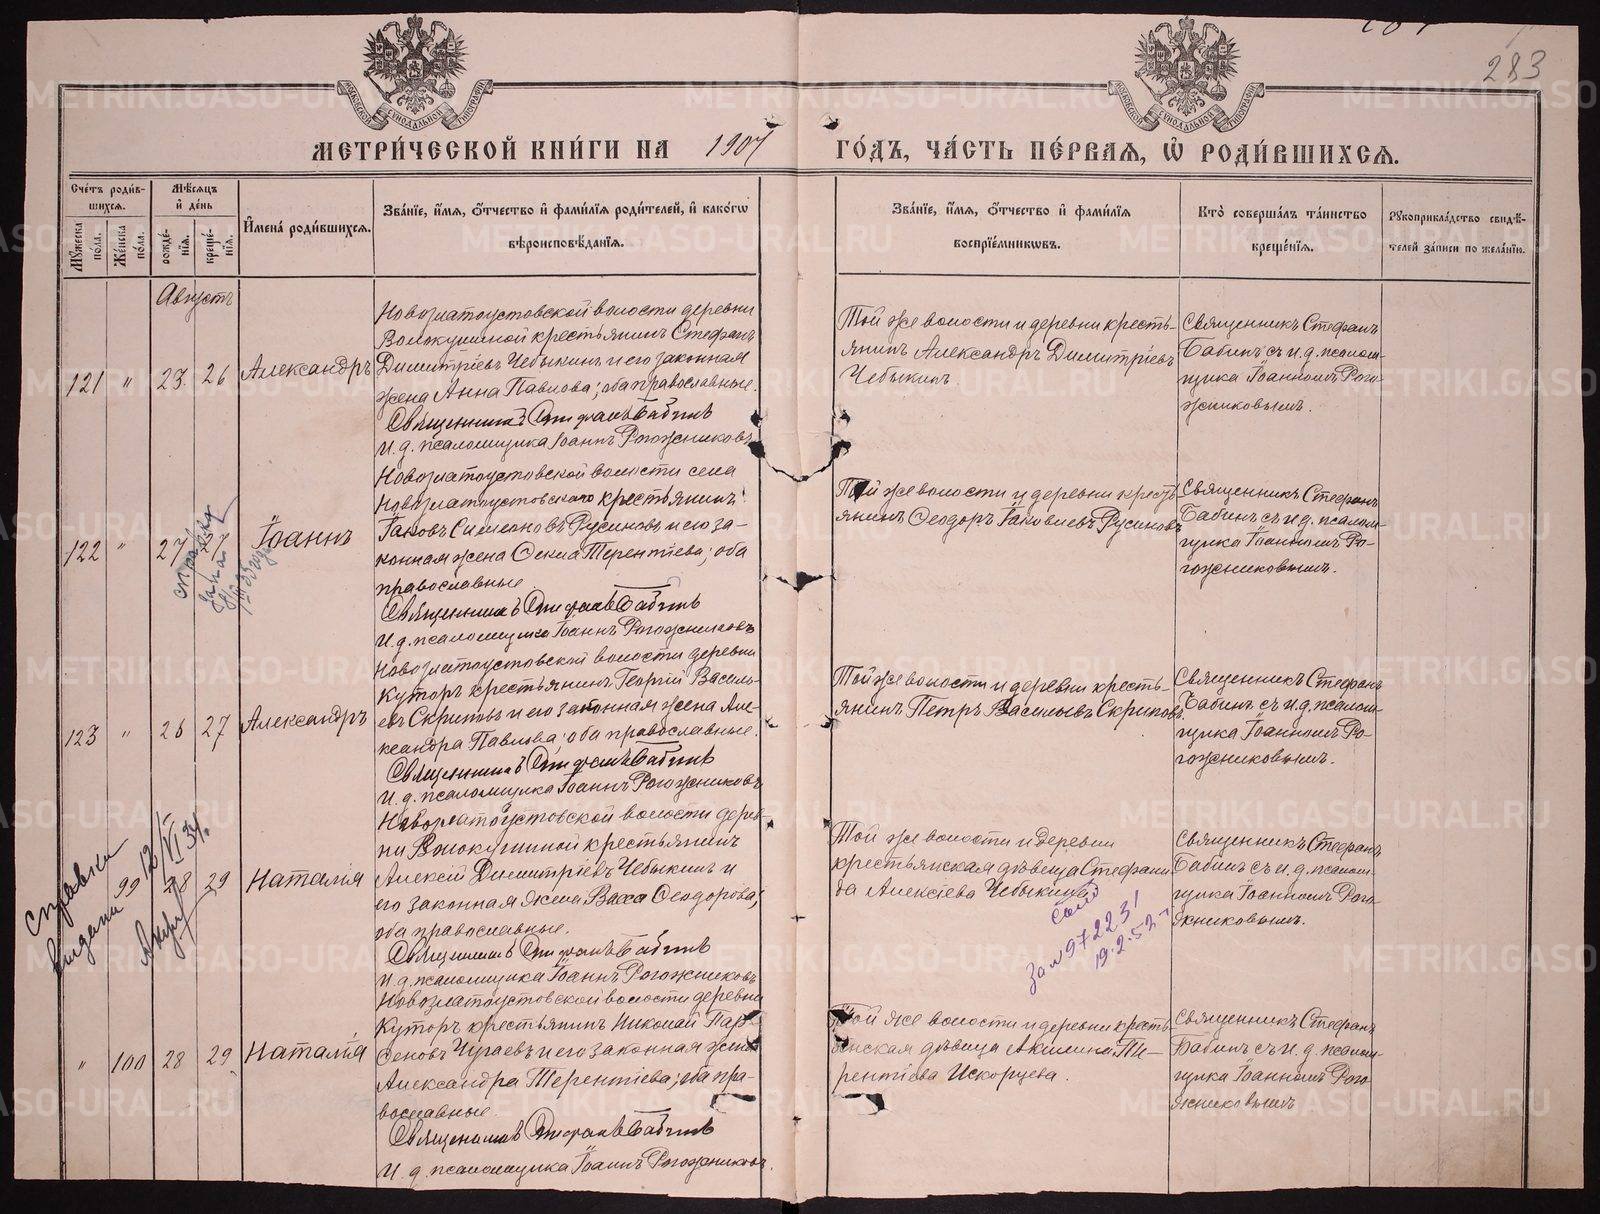 283
МЕТРИ́ЧЕСКОЙ КНИ́ГИ НА 1907 ГО́ДЪ, ЧА́СТЬ ПЕ́РВАЯ, Ѡ҆ РОДИ́ВШИХСЯ.
Сче́тъ роди́в-
шихся.
Му́жеска по́ла.
Же́нска по́ла.
Мѣ́сяцъ
и҆ де́нь
рожде́-
нія.
креще́-
нія.
И҆мена̀ роди́вшихся.
Зва́нїе, и҆́мя, ѻ҆́тчество и҆ фами́лїя роди́телей, и҆ како́гѡ
вѣроисповѣ́данїя.
Зва́нїе, и҆́мя, ѻ҆́тчество и҆ фами́лїя
воспрїе́мниковъ.
Кто̀ соверша́лъ та́инство
креще́нїя.
Рꙋкоприкла́дство свидѣ́-
телей за́писи по жела́нїю.
Августъ
121 " 23 26 Александръ
Новозлатоустовской волости деревни
Волокушиной крестьянинъ Стефанъ
Димитріевъ Чебыкинъ и его законная
жена Анна Павлова; оба православные.
Священникъ Стефанъ Бабинъ
И. д. псаломщика Іоаннъ Рогожниковъ
Той же волости и деревни кресть-
янинъ Александръ Димитріевъ
Чебыкинъ.
Священникъ Стефанъ
Бабинъ съ и. д. псалом-
щика Іоанномъ Рого-
жниковымъ.
122 " 27 Іоаннъ
Новозлатоустовской волости села
Новозлатоустовскаго крестьянинъ
Іаковъ Симеоновъ Русиновъ и его за-
конная жена Фекла Терентіева; оба
православные.
Священникъ Стефанъ Бабинъ
И. д. псаломщика Іоаннъ Рогожниковъ
Той же волости и деревни кресть
янинъ Ѳеодоръ Іаковлевъ Русиновъ
Священникъ Стефанъ
Бабинъ съ и. д. псалом-
щика Іоанномъ Ро-
гожниковымъ.
123 " 26 27 Александръ
Новозлатоустовской волости деревни
Куторъ крестьянинъ Георгій Василь-
евъ Скриповъ и его законная жена Але-
ксандра Павлова; оба православные.
Священникъ Стефанъ Бабинъ
И. д. псаломщика Іоаннъ Рогожниковъ
Той же волости и деревни кресть-
янинъ Петръ Васильевъ Скриповъ.
Священникъ Стефанъ
Бабинъ съ и. д. псалом-
щика Іоанномъ Ро-
гожниковымъ.
99 28 29 Наталія
Новозлатоустовской волости дерев-
ни Волокушиной крестьянинъ
Алексій Димитріевъ Чебыкинъ и
его законная жена Васса Ѳеодорова;
оба православные.
Священникъ Стефанъ Бабинъ
И. д. псаломщика Іоаннъ Рогожниковъ
Той же волости и деревни
крестьянская дѣвица Стефани-
да Алексіева Чебыкина
Священникъ Стефанъ
Бабинъ съ и. д. псалом-
щика Іоанномъ Рого-
жниковымъ.
справка
выдана
12/VI 34.
За № 972231
19-2-52 г
" 100 28 29 Наталія
Новозлатоустовской волости деревни
Куторъ крестьянинъ Николай Пар-
ѳеновъ Чугаевъ и его законная жена
Александра Терентіева; оба пра-
вославные.
Священникъ Стефанъ Бабинъ
И. д. псаломщика Іоаннъ Рогожниковъ.
Той же волости и деревни кресть-
янская дѣвица Акилина Те-
рентіева Искорцева.
Священникъ Стефанъ
Бабинъ съ и. д. псалом-
щика Іоанномъ Рого-
жниковымъ
METRIKI.GASO-URAL.RU